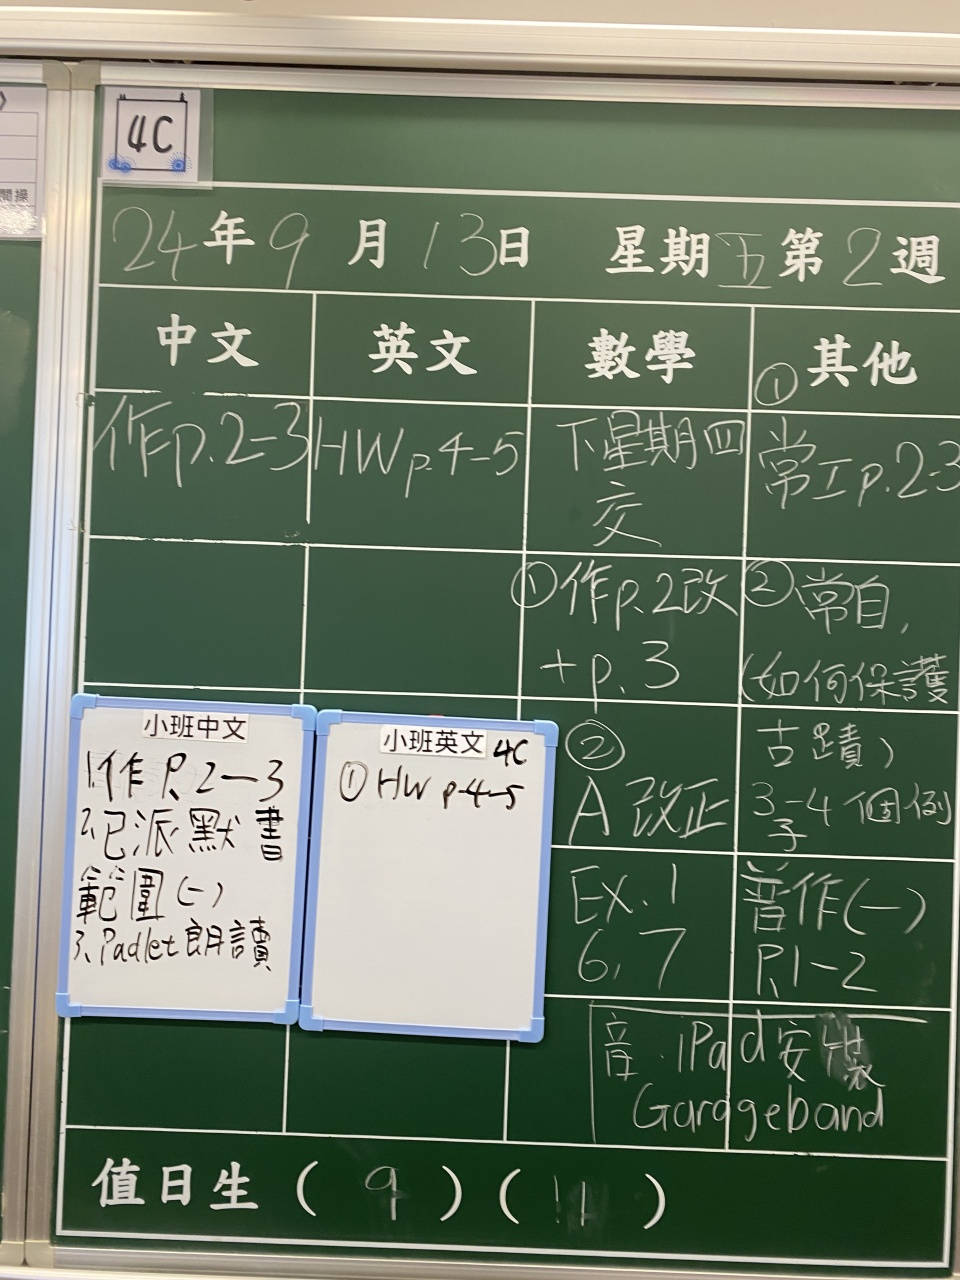 間操
4C
24年9月13日 星期五第2週
中文 英文 數學 其他
作p.2-3
HW p.4-5
下星期四
交
①作p.2改
+p.3
②
A 改正
Ex.1
6,7
①
常工p.2-3
②常自,
(如何保護
古蹟)
3-4個例
子
普作(一)
P.1-2
音.iPad安裝
Garageband
小班中文
1.作P.2-3
2.已派默書
範圍(一)
3.Padlet朗讀
小班英文 4C
①HW p.4-5
值日生(9)(11)